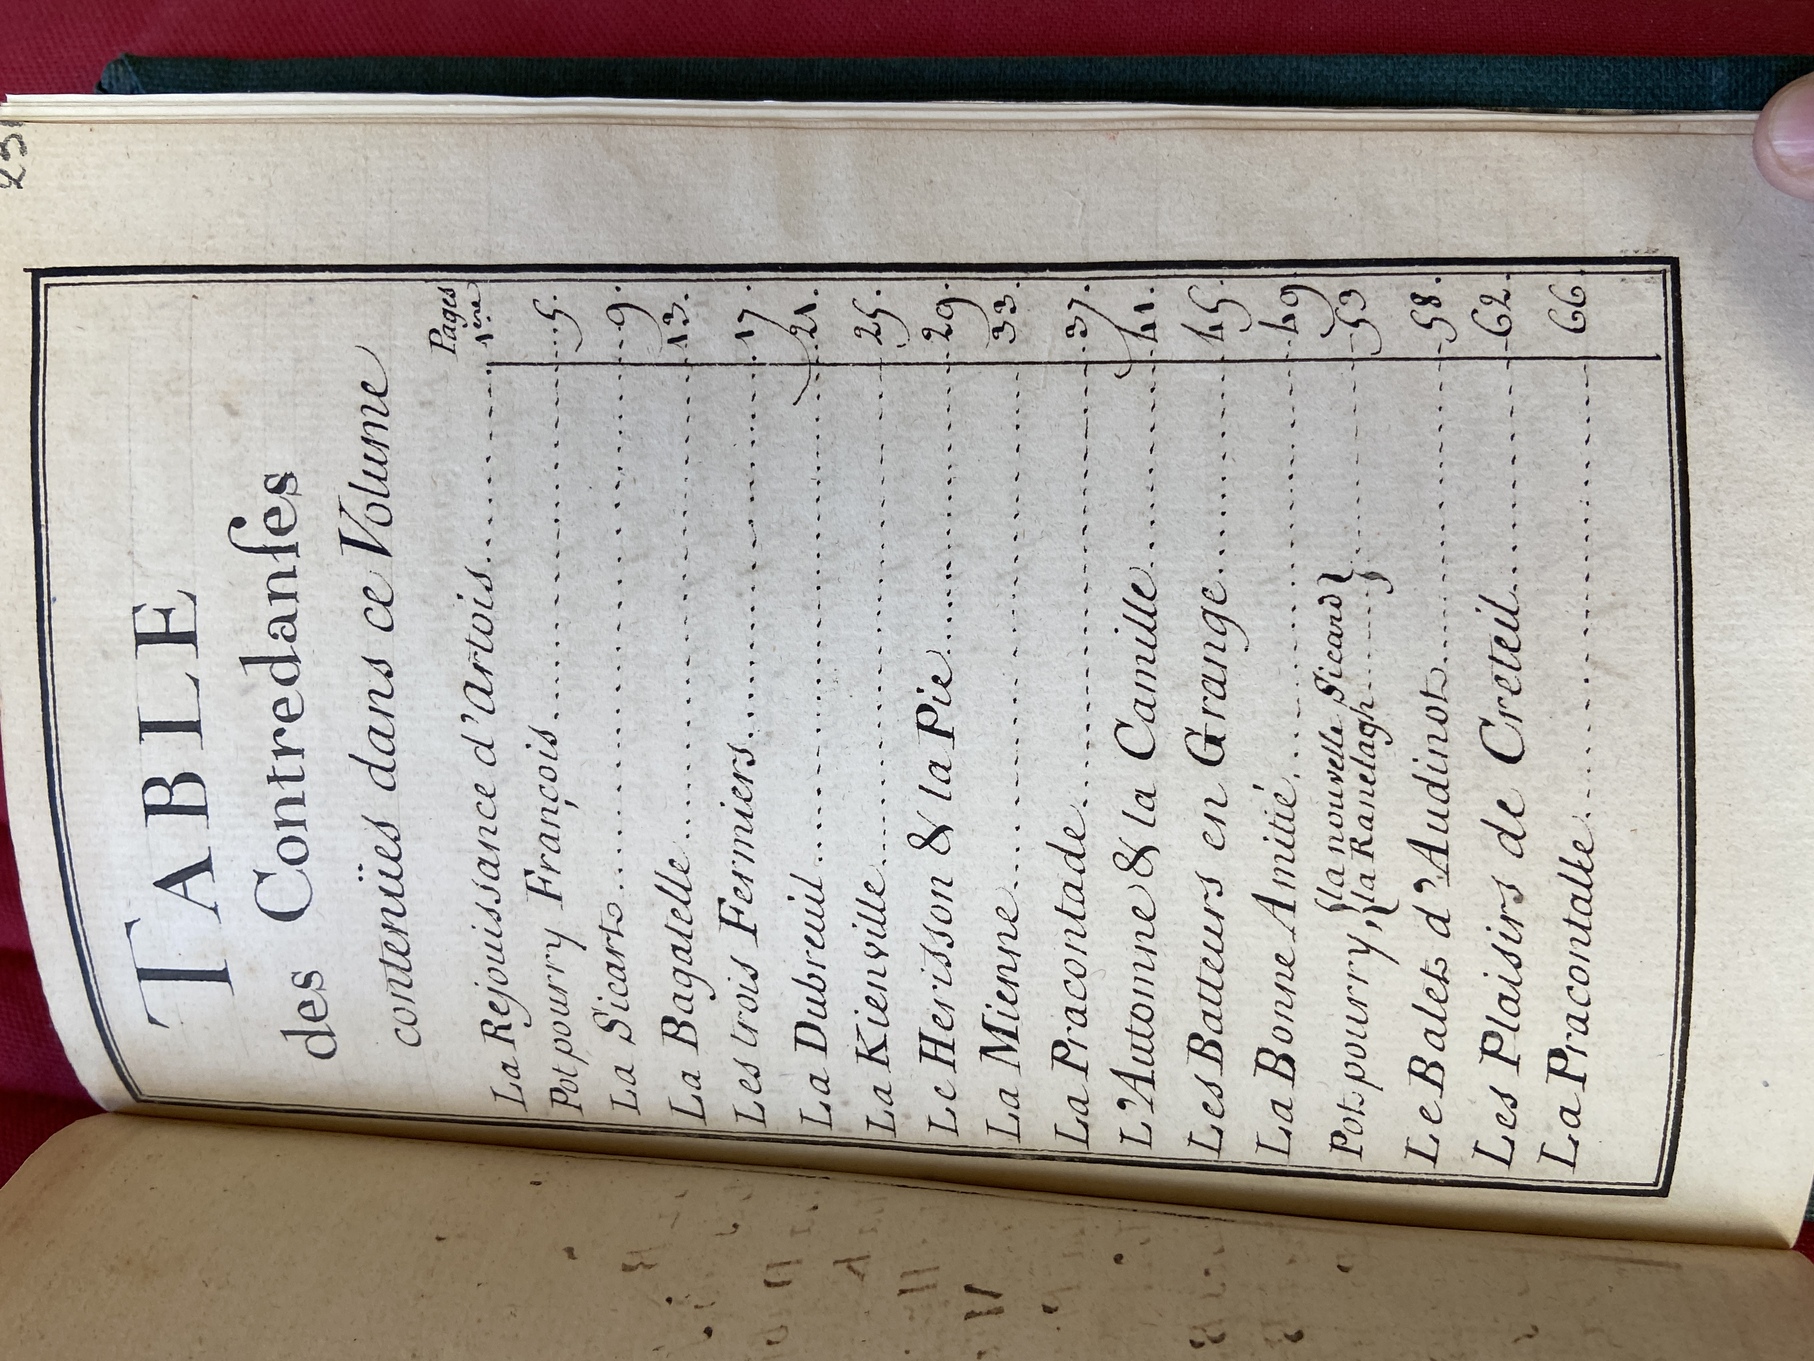 231
TABLE
des Contredanſes
contenües dans ce Volume
Pages
La Rejouissance d'Artois 1ere
Potpourry François 5.
La Sicart 9.
La Bagatelle 13.
Les trois Fermiers 17.
La Dubreuil 21.
La Kienville 25.
Le Herisson & la Pie 29.
La Mienne 33.
La Pracontade 37.
L'Automne & la Camille 41.
Les Batteurs en Grange 45.
La Bonne Amitié 49
Pot pourry, {la nouvelle Sicard} {la Ranelagh} 53
Le Balet d'Audinot 58.
Les Plaisirs de Creteil 62.
La Pracontalle 66.